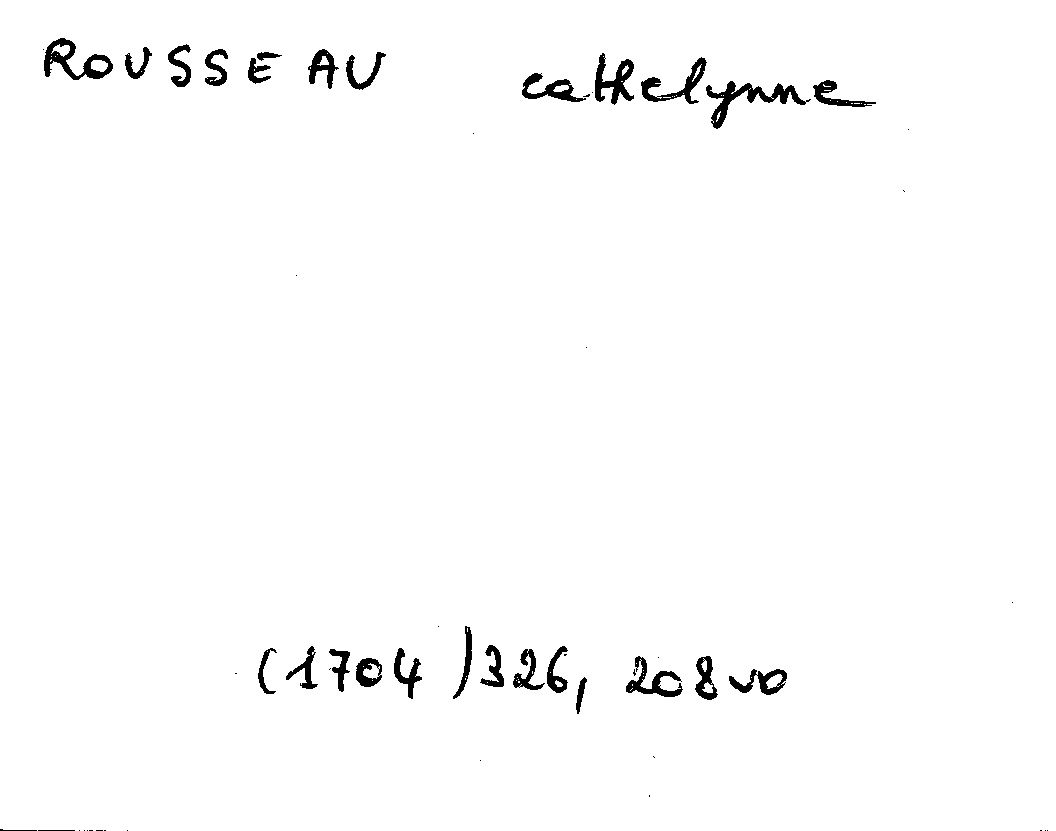 ROUSSEAU cathelynne
(1704) 326, 208vo